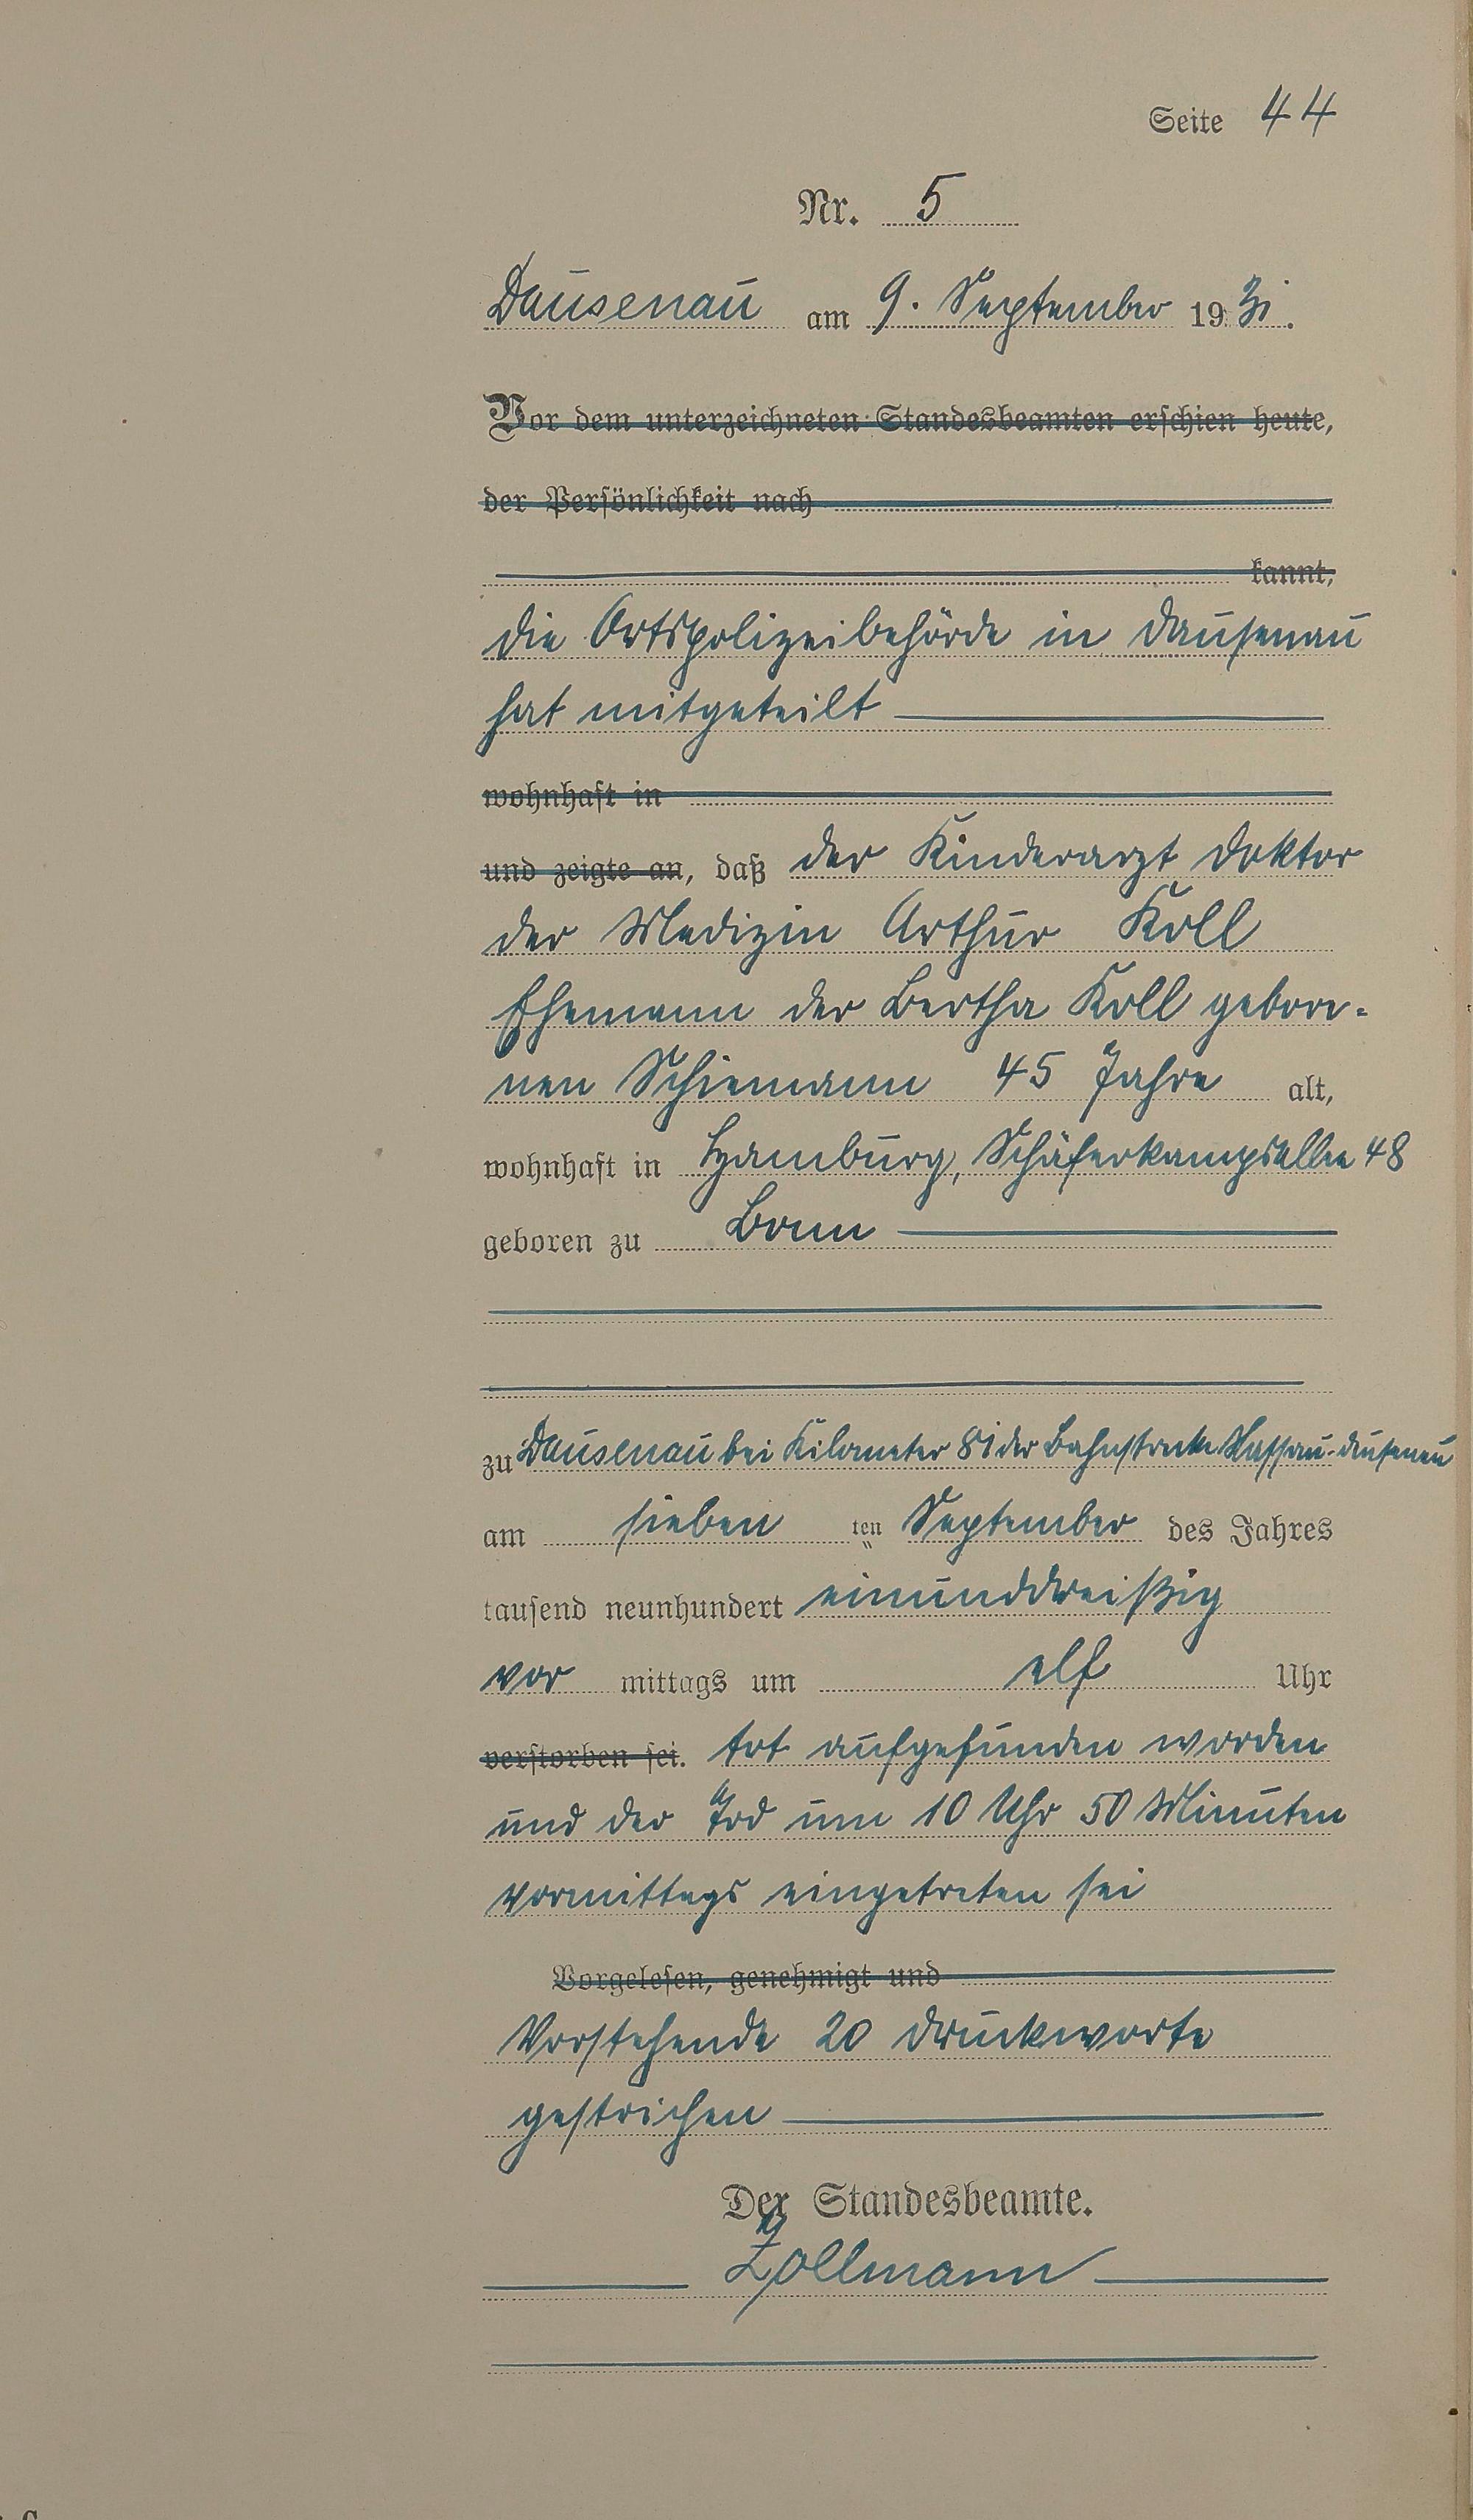 Seite 44
Nr. 5
Dausenau am 9. September 1931.
Vor dem unterzeichneten Standesbeamten erschien heute,
der Persönlichkeit nach
kannt,
die Ortspolizeibehörde in Dausenau
hat mitgeteilt
wohnhaft in
und zeigte an, daß der Kinderarzt Doktor
der Medizin Arthur Koll
Ehemann der Bertha Koll gebore-
nen Schiemann 45 Jahre alt,
wohnhaft in Hamburg, Schäferkampsallee 48
geboren zu Bonn
zu Dausenau bei Kilometer 81 der Bahnstrecke Nassau-Dausenau
am sieben ten September des Jahres
tausend neunhundert einunddreißig
vor mittags um elf Uhr
verstorben sei. tot aufgefunden worden
und der Tod um 10 Uhr 50 Minuten
vormittags eingetreten sei
Vorgelesen, genehmigt und
Vorstehende 20 Druckworte
gestrichen
Der Standesbeamte.
Zollmann